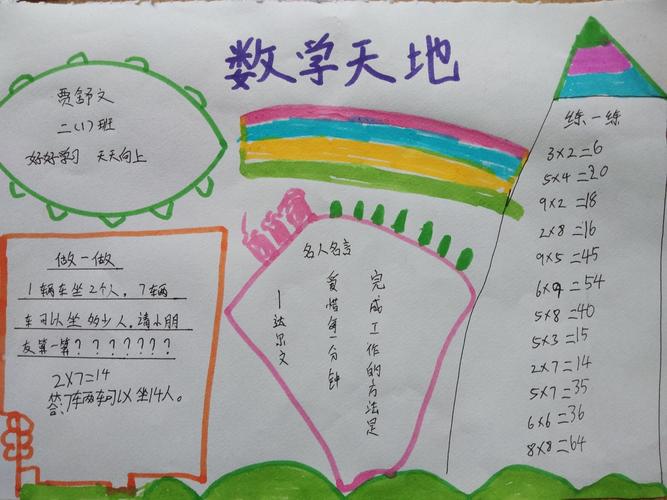 数学天地
贾舒文
二(1)班
好好学习 天天向上
做一做
1辆车坐2人，7辆
车可以坐多少人。请小朋
友算一算???????
2×7=14
答:7车两车可以坐14人。
名人名言
完成工作的方法是
爱惜每一分钟
—达尔文
练一练
3×2=6
5×4=20
9×2=18
2×8=16
9×5=45
6×9=54
5×8=40
5×3=15
2×7=14
5×7=35
6×6=36
8×8=64